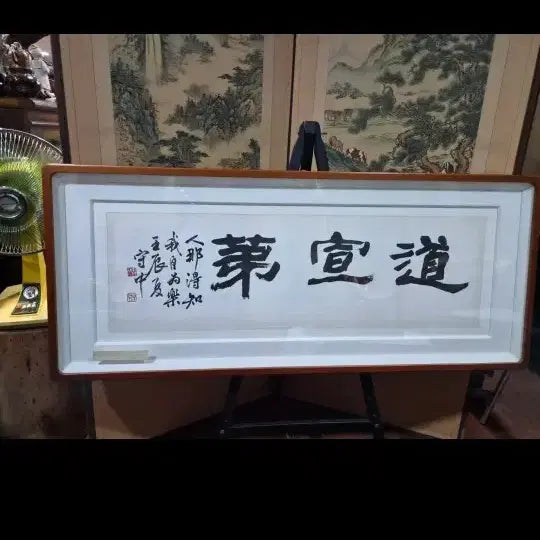 道宣苐
人那得知
我自為樂
壬辰夏
守中